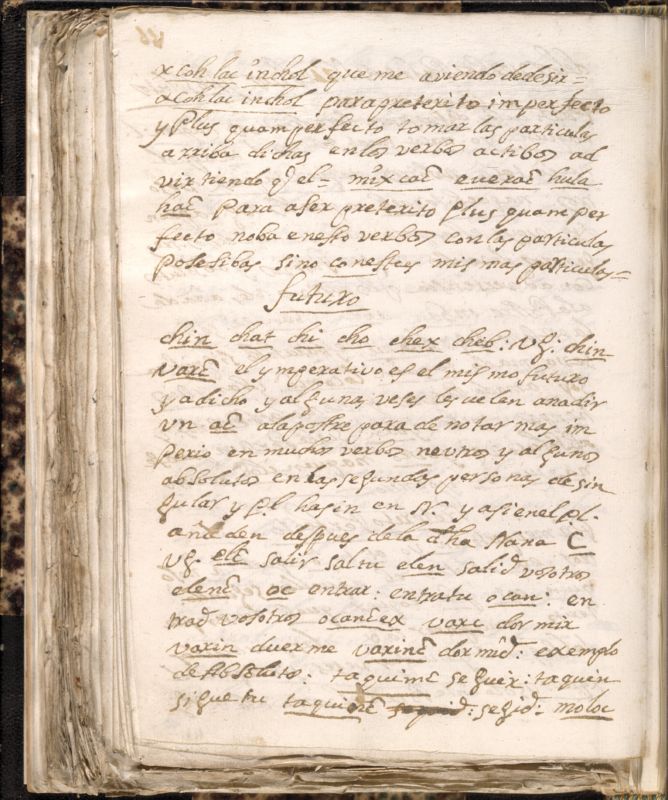 xcohlac inchol que me aviendo de desir=
xcohlac inchol para preterito imperfecto
y Plus quam perfecto tomar las particulas
arriba dichas en los verbos actibos ad
virtiendo q̃ el= mixcac̃ everac̃ hula
hac̃ para aser preterito Plus quam per
fecto noba en esto verbos con las particulas
posesibas sino con estas mismas particulas=
futuro
chin chat chi cho chex cheb: vg: chin
varc̃ el ymperativo es el mismo futuro
ya dicho y algunas veses le suelen anadir
vn ac̃ a la postre para denotar mas im
perio en muchos verbos neutros y algunos
absolutos en las segundas personas de sin
gular y Pl. hasin en N. y asi en el pl.
añaden despues de la dha N una C̃
vg. elc̃ salir sal tu elen salid vosotros
elenc̃ oc entrar: entra tu ocan: en
trad vosotros ocanc̃ex varc dormir
varin duerme varinc̃ dormid: exemplo
de Absoluto: taquimc̃ seguir: taquin
sigue tu taquinc̃ : segid: moloc